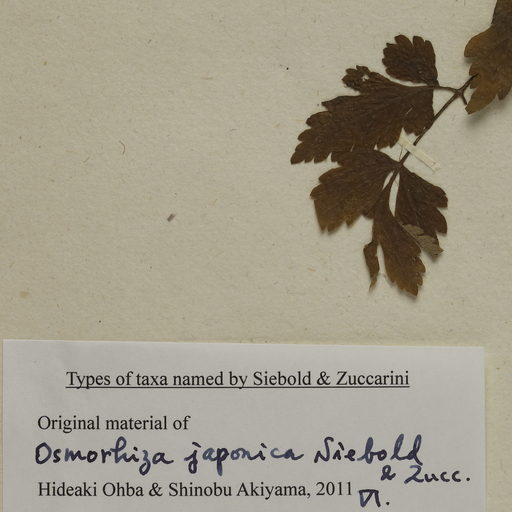 Types of taxa named by Siebold & Zuccarini
Original material of
Osmorhiza japonica Siebold
& Zucc.
Hideaki Ohba & Shinobu Akiyama, 2011